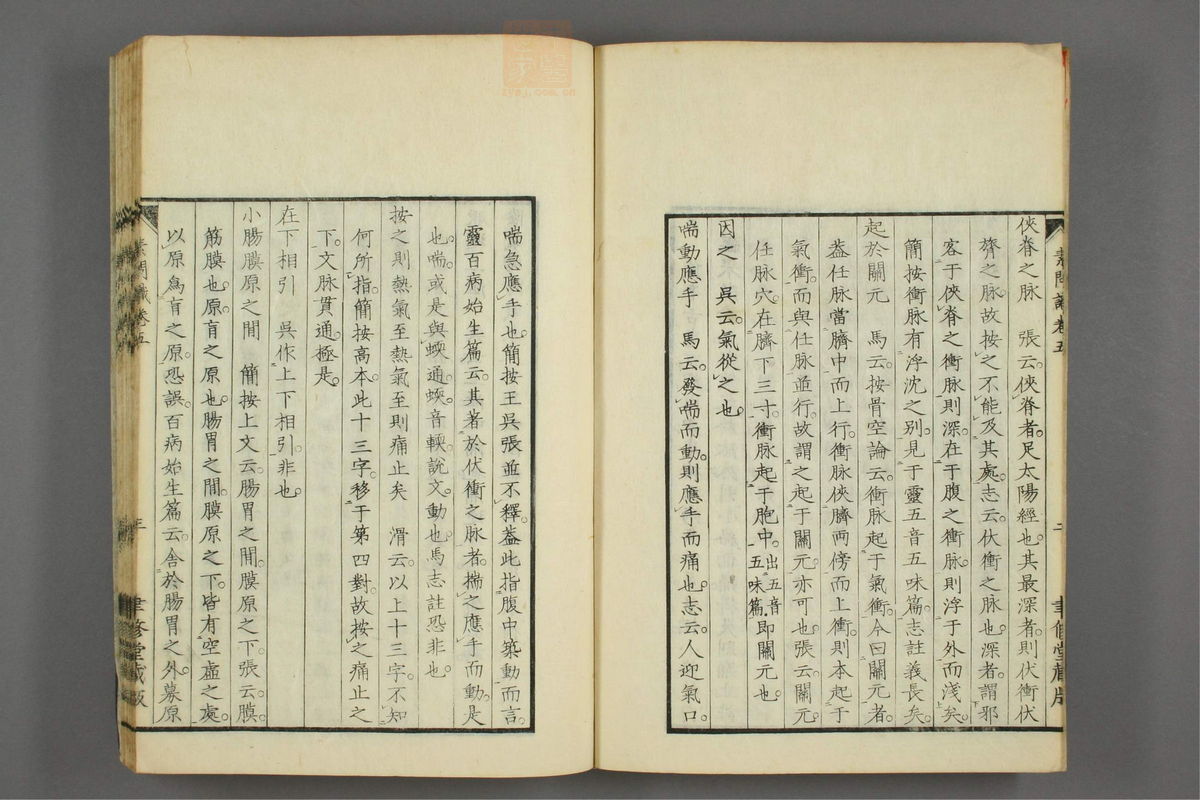 俠脊之脉　張云。俠脊者。足太陽經也。其最深者。則伏衝伏
膂之脉。故按之不能及其處。志云。伏衝之脉也。深者。謂邪
客于俠脊之衝脉則深。在于腹之衝脉。則浮于外而淺矣。
簡按衝脉有浮沈之別。見于靈五音五味篇。志註義長矣。
起於關元　馬云。按骨空論云。衝脉起于氣衝。今曰關元者。
蓋任脉當臍中而上行。衝脉俠臍兩傍而上衝。則本起于
氣衝。而與任脉並行。故謂之起于關元亦可也。張云。關元。
任脉穴。在臍下三寸。衝脉起于胞中。出五音五味篇。即關元也。
因之　吳云。氣從之也。
喘動應手　馬云。發喘而動。則應手而痛也。志云。人迎氣口。
素問識卷五
二
聿修堂藏版
喘急應手也。簡按王吳張並不釋。蓋此指腹中築動而言。
靈百病始生篇云。其著於伏衝之脉者。揣之應手而動。是
也。喘。或是與蝡通。蝡。音輭。說文。動也。馬志註恐非也。
按之則熱氣至熱氣至則痛止矣　滑云。以上十三字。不知
何所指。簡按高本。此十三字。移于第四對。故按之痛止之
下。文脉貫通。極是。
在下相引　吳作上下相引。非也。
小腸膜原之間　簡按上文云。腸胃之間。膜原之下。張云。膜
筋膜也。原。肓之原也。腸胃之間。膜原之下。皆有空虛之處。
以原爲肓之原。恐誤。百病始生篇云。舍於腸胃之外。募原
素問識卷五
三
聿修堂藏版